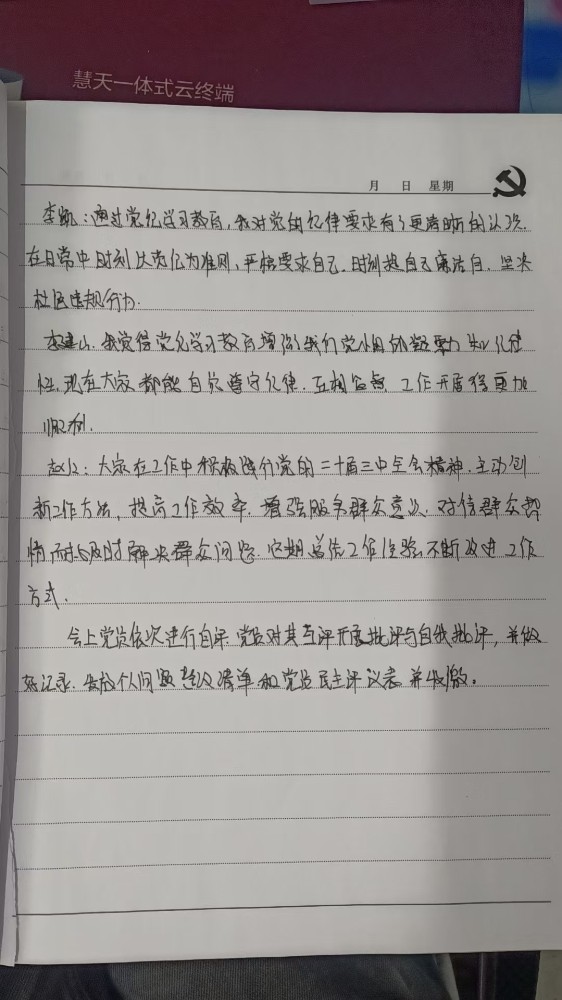 慧天一体式云终端
月 日 星期
李凯：通过党纪学习教育，我对党的纪律要求有了更清晰的认识.
在日常中时刻以党纪为准则，严格要求自己.时刻 自己廉洁自 坚决
杜区违规行为.
李建山.我觉得党纪学习教育增强了我们党小组的凝聚力和纪律
性.现在大家都能自觉遵守纪律.互相监督 工作开展得更加
顺利.
大家在工作中积极践行党的二十届三中全会精神.主动创
新工作方法，提高工作效率.增强服务群众意识.对待群众热
情耐 及时解决群众问题.定期总结工作经验不断改进工作
方式.
会上党员依次进行自评.党员对其互评开展批评与自我批评，并做
好记录.发放个人问题 清单和党员民主评议表并收缴。